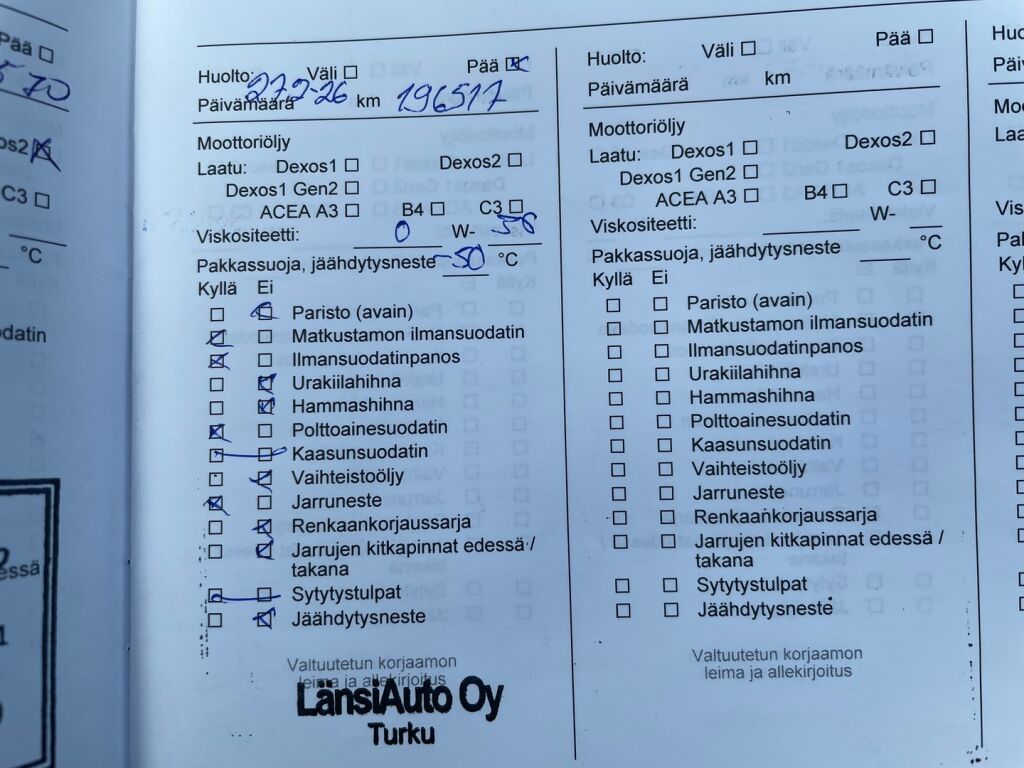 Pää ☐
5 70
os2 ☒
C3 ☐
°C
odatin
essä
1
Huolto: Väli ☐ Pää ☒
Päivämäärä 27.2-26 km 196517
Moottoriöljy
Laatu: Dexos1 ☐ Dexos2 ☐
Dexos1 Gen2 ☐
ACEA A3 ☐ B4 ☐ C3 ☐
Viskositeetti: 0 W-
Pakkassuoja, jäähdytysneste -50 °C
Kyllä Ei
☐ ☒ Paristo (avain)
☒ ☐ Matkustamon ilmansuodatin
☒ ☐ Ilmansuodatinpanos
☐ ☒ Urakiilahihna
☐ ☒ Hammashihna
☒ ☐ Polttoainesuodatin
☐ ☐ Kaasunsuodatin
☐ ☒ Vaihteistoöljy
☒ ☐ Jarruneste
☐ ☒ Renkaankorjaussarja
☐ ☒ Jarrujen kitkapinnat edessä /
takana
☐ ☐ Sytytystulpat
☐ ☒ Jäähdytysneste
Valtuutetun korjaamon
leima ja allekirjoitus
LänsiAuto Oy
Turku
Huolto: Väli ☐ Pää ☐
Päivämäärä km
Moottoriöljy
Laatu: Dexos1 ☐ Dexos2 ☐
Dexos1 Gen2 ☐
ACEA A3 ☐ B4 ☐ C3 ☐
Viskositeetti: W-
Pakkassuoja, jäähdytysneste °C
Kyllä Ei
☐ ☐ Paristo (avain)
☐ ☐ Matkustamon ilmansuodatin
☐ ☐ Ilmansuodatinpanos
☐ ☐ Urakiilahihna
☐ ☐ Hammashihna
☐ ☐ Polttoainesuodatin
☐ ☐ Kaasunsuodatin
☐ ☐ Vaihteistoöljy
☐ ☐ Jarruneste
☐ ☐ Renkaankorjaussarja
☐ ☐ Jarrujen kitkapinnat edessä /
takana
☐ ☐ Sytytystulpat
☐ ☐ Jäähdytysneste
Valtuutetun korjaamon
leima ja allekirjoitus
Huo
Päiv
Moo
Laa
Vis
Pak
Kyl